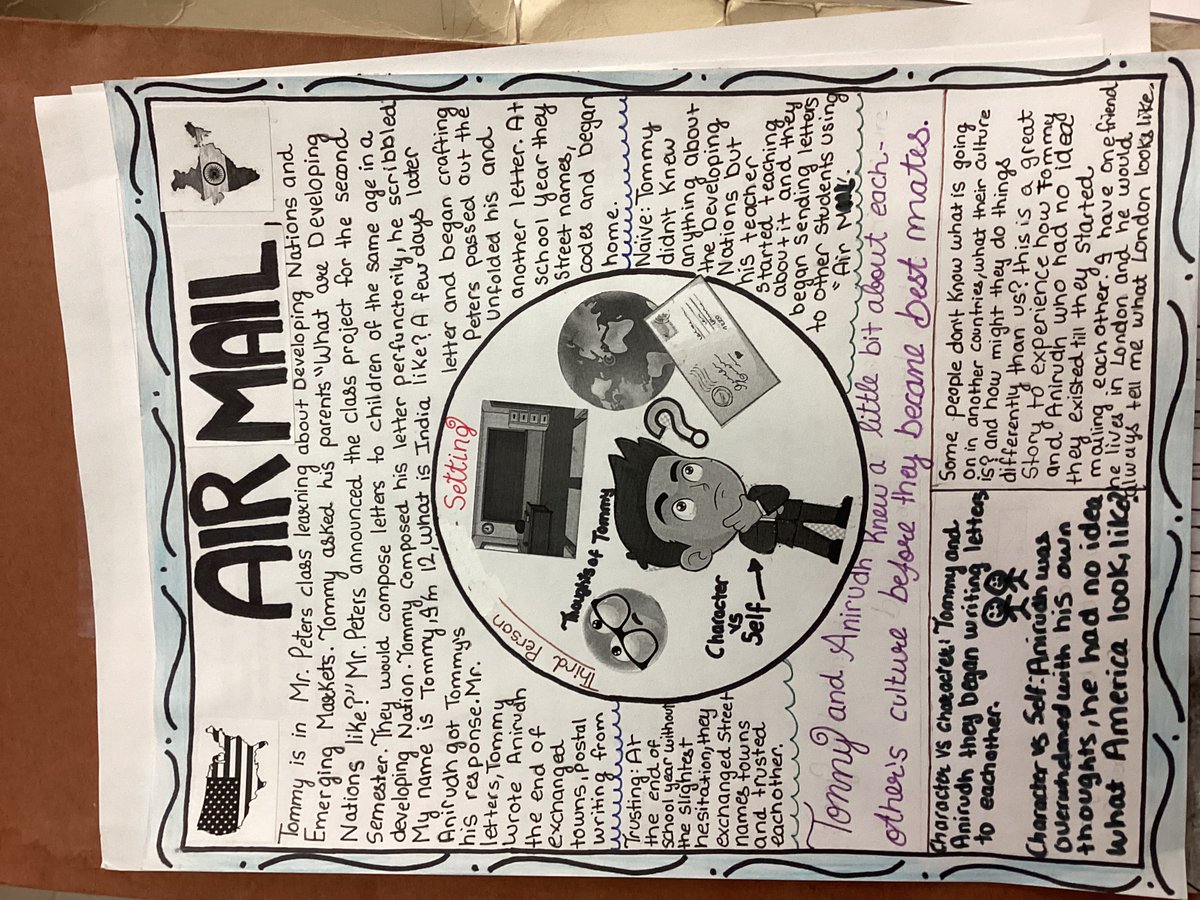 AIR MAIL
Tommy is in Mr. Peters class learning about Developing Nations and
Emerging Markets. Tommy asked his parents "What are Developing
Nations like?" Mr. Peters announced the class project for the second
Semester. They would compose letters to children of the same age in a
developing Nation. Tommy Composed his letter perfunctorily, he scribbled
My name is Tommy, I'm 12, what is India like? A few days later
Anirudh got Tommys letter and began crafting
his response. Mr. Peters passed out the
letters, Tommy Unfolded his and
Wrote Anirudh another letter. At
the end of school year they
exchanged Street names,
towns, Postal codes and began
writing from home.
Trusting: At
the end of
school year without
the slightest
hesitation, they
exchanged Street
names towns
and trusted
eachother.
Third Person
Setting
Thoughts of Tommy
Character
vs
Self
Naive: Tommy
didn't Know
anything about
the Developing
Nations but
his teacher
started teaching
about it and they
began sending letters
to other students using
"Air Mail.
Tommy and Anirudh Knew a little bit about each-
other's culture before they became best mates.
Character vs Character: Tommy and
Anirudh they began writing letters
to eachother.
Character vs Self: Anirudh was
overwhelmed with his own
thoughts, he had no idea
what America look, like?
Some people don't Know what is going
on in another countries, what their culture
is? and how might they do things
differently than us? this is a great
Story to experience how Tommy
and Anirudh who had no idea
they existed till they started
mailing each other. I have one friend
he lives in London and he would
always tell me what London looks like.